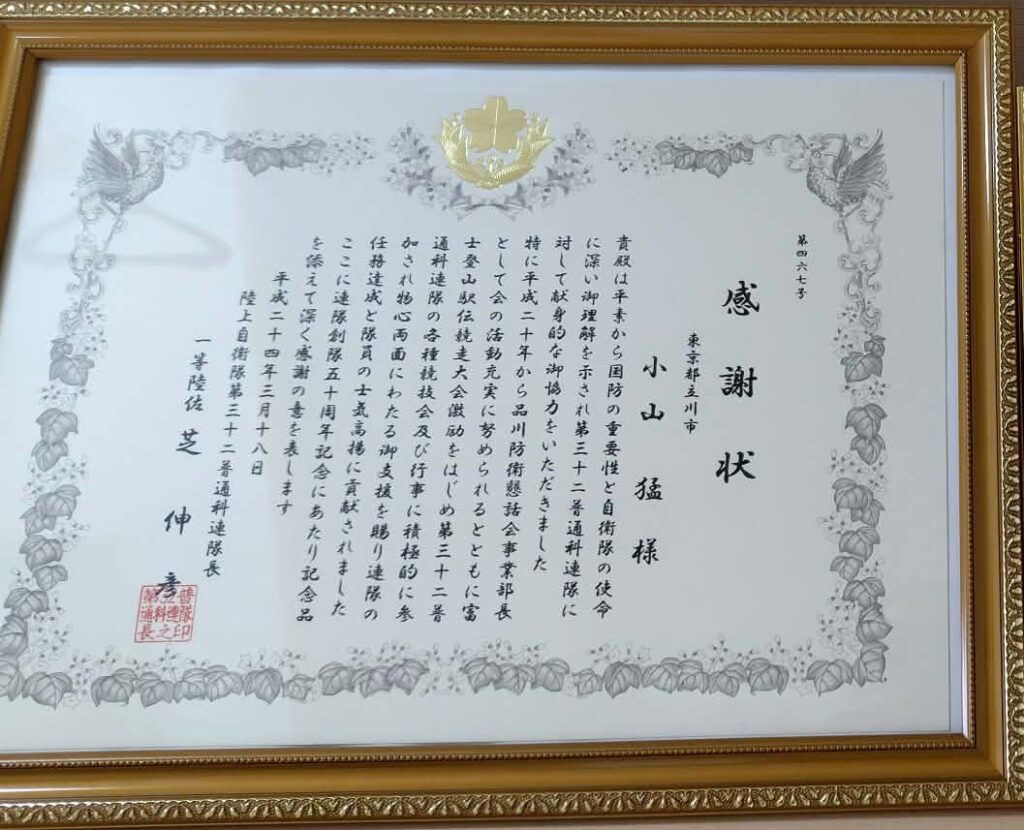 第四六七号
感謝状
東京都立川市
小山 猛 様
貴殿は平素から国防の重要性と自衛隊の使命
に深い御理解を示され第三十二普通科連隊に
対して献身的な御協力をいただきました
特に平成二十年から品川防衛懇話会事業部長
として会の活動充実に努められるとともに富
士登山駅伝競走大会激励をはじめ第三十二普
通科連隊の各種競技会及び行事に積極的に参
加され物心両面にわたる御支援を賜り連隊の
任務達成と隊員の士気高揚に貢献されました
ここに連隊創隊五十周年記念にあたり記念品
を添えて深く感謝の意を表します
平成二十四年三月十八日
陸上自衛隊第三十二普通科連隊長
一等陸佐 芝 伸彦